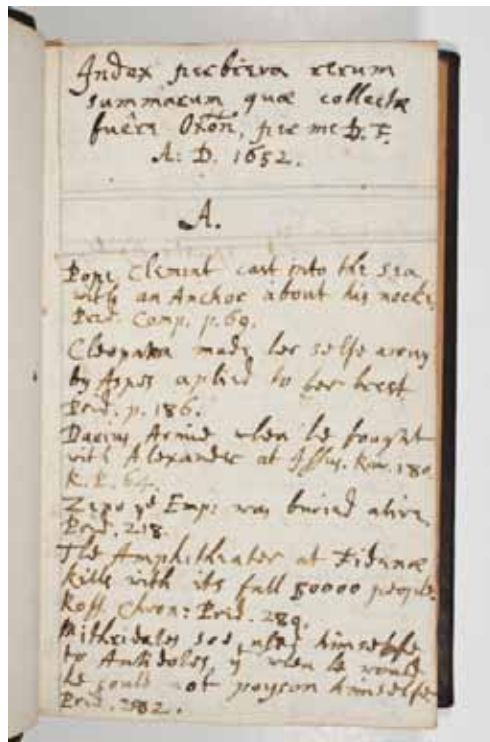 Index perbrevis rerum
summarum quæ collectæ
fuêre Oxoñ, per me D. F.
A: D. 1652.
A.
Pope Clement cast into the sea
with an Anchor about his necke,
Prid. Comp. p. 69.
Cleopatra made her selfe away
by Aspes aplied to her brest
Prid. p. 186.
Darius Armie when he fought
with Alexander at Issus. 180.
R. 64.
Zeno yᵉ Emp: was buried alive
Prid. 218.
The Amphitheater at Fidenæ
kills with its fall 50000 people.
Ross. Chron: Prid. 289.
Mithridates soe used himselfe
to Antidotes, yᵗ when he would
he could not poyson himselfe
Prid. 282.